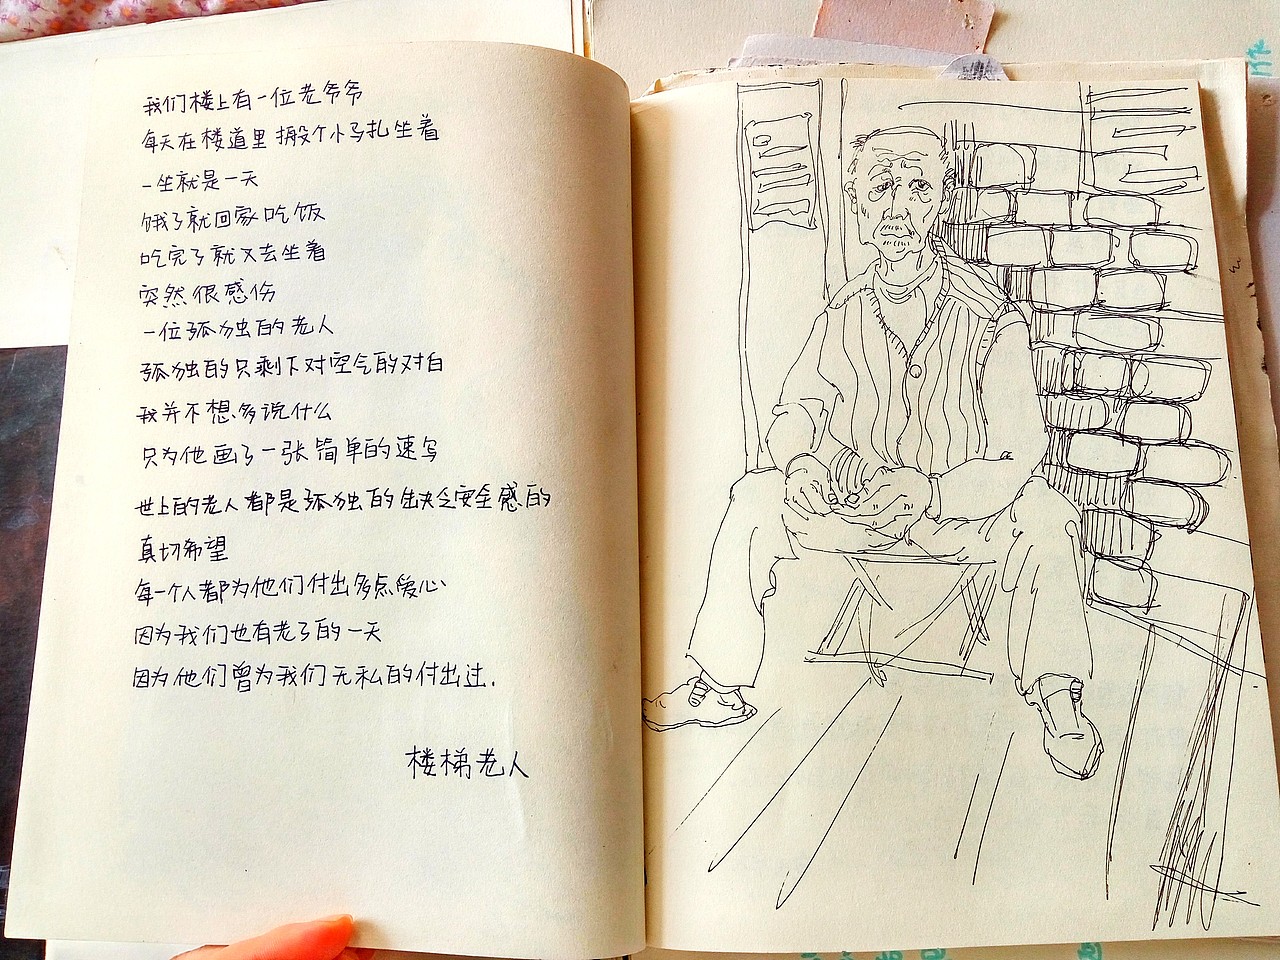 我们楼上有一位老爷爷
每天在楼道里搬个小马扎坐着
一坐就是一天
饿了就回家吃饭
吃完了就又去坐着
突然很感伤
一位孤独的老人
孤独的只剩下对空气的对白
我并不想多说什么
只为他画了一张简单的速写
世上的老人都是孤独的缺乏安全感的
真切希望
每一个人都为他们付出多点爱心
因为我们也有老了的一天
因为他们曾为我们无私的付出过.
楼梯老人